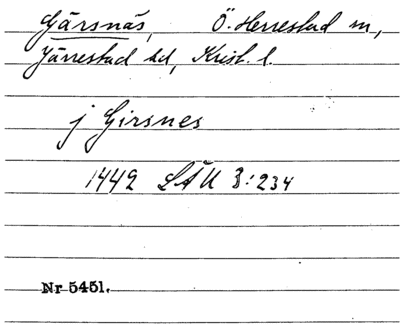 Gärsnäs, Ö. Herrestad sn,
Järrestad hd, Krist. l.
j Girsnes
1442 LÄU 3:234
Nr 5451.